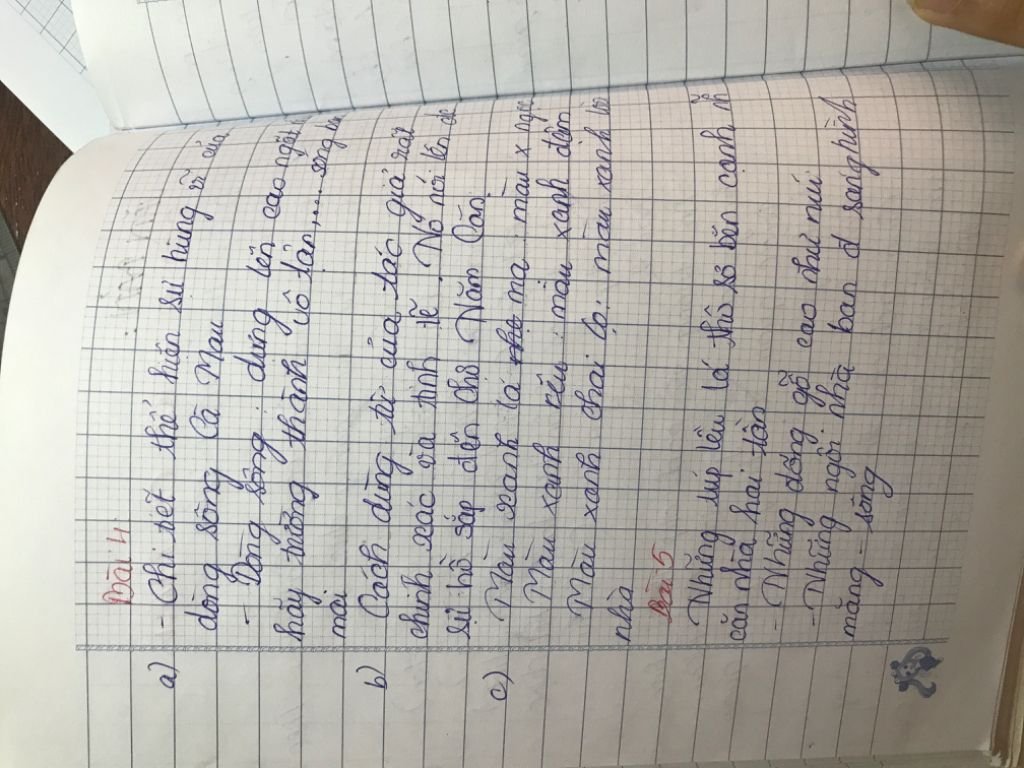 Bài 4
a) - Chi tiết thể hiện sự hùng vĩ của
dòng sông Cà Mau
- Dòng sông: dựng lên cao ngất
hãy trường thành vô tận,.... song
mài
b) Cách dùng từ của tác giả rất
chính xác và tinh tế. Nó nói lên
sự hồ sắp đến chợ Năm Căn
c) Màu xanh lá ma: màu x ngọc
Màu xanh rêu: màu xanh đến
Màu xanh chai lọ: màu xanh
nhà
Bài 5
Những túp lều lá thô sơ bên cạnh
căn nhà hai tần
- Những đống gỗ cao như núi
- Những ngôi nhà ban đ sang hình
măng - sông